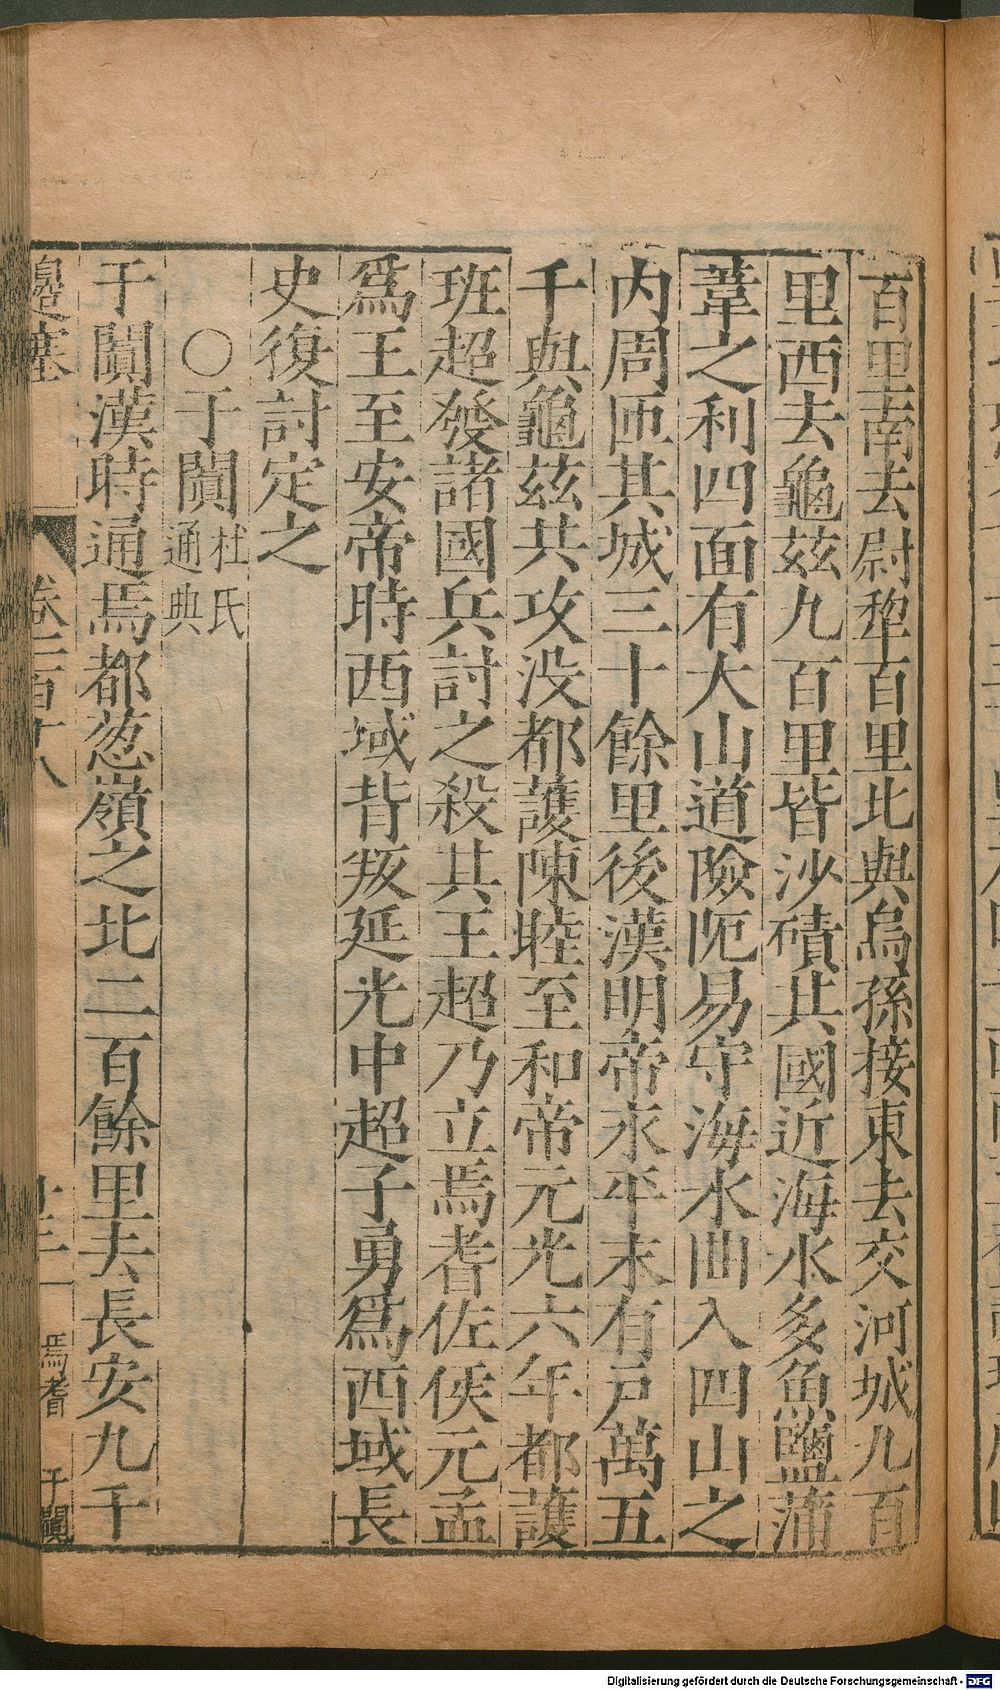 百里南去尉犂百里北與烏孫接東去交河城九百
里西去龜茲九百里皆沙磧其國近海水多魚鹽蒲
葦之利四面有大山道險阨易守海水曲入四山之
内周匝其城三十餘里後漢明帝永平末有戸萬五
千與龜茲共攻没都護陳睦至和帝元光六年都護
班超發諸國兵討之殺其王超乃立焉耆佐侯元孟
爲王至安帝時西域背叛延光中超子勇爲西域長
史復討定之
〇于闐
杜氏
通典
于闐漢時通焉都葱嶺之北二百餘里去長安九千
邊塞
卷三百十八
十三
焉耆
于闐
Digitalisierung gefördert durch die Deutsche Forschungsgemeinschaft - DFG